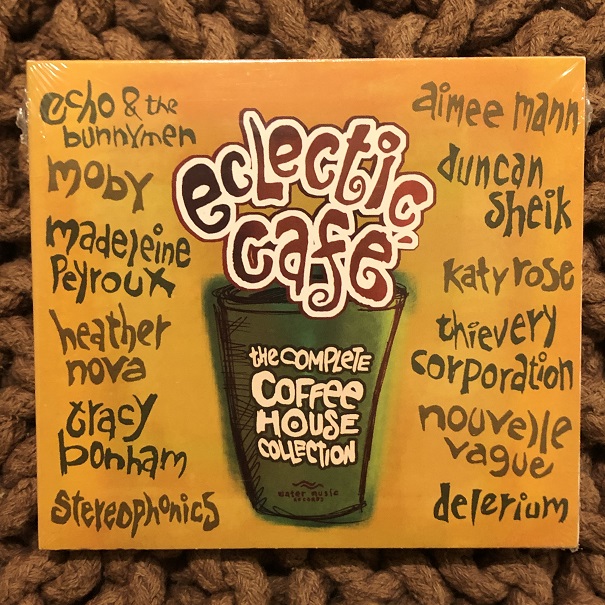 echo & the
bunnymen
moby
madeleine
Peyroux
heather
nova
tracy
bonham
Stereophonics
eclectic
café
the COMPLETE
COFFee
HOUSE
COLLECTION
water music
records
aimee mann
duncan
Sheik
Katy rose
thievery
corporation
nouvelle
vague
delerium